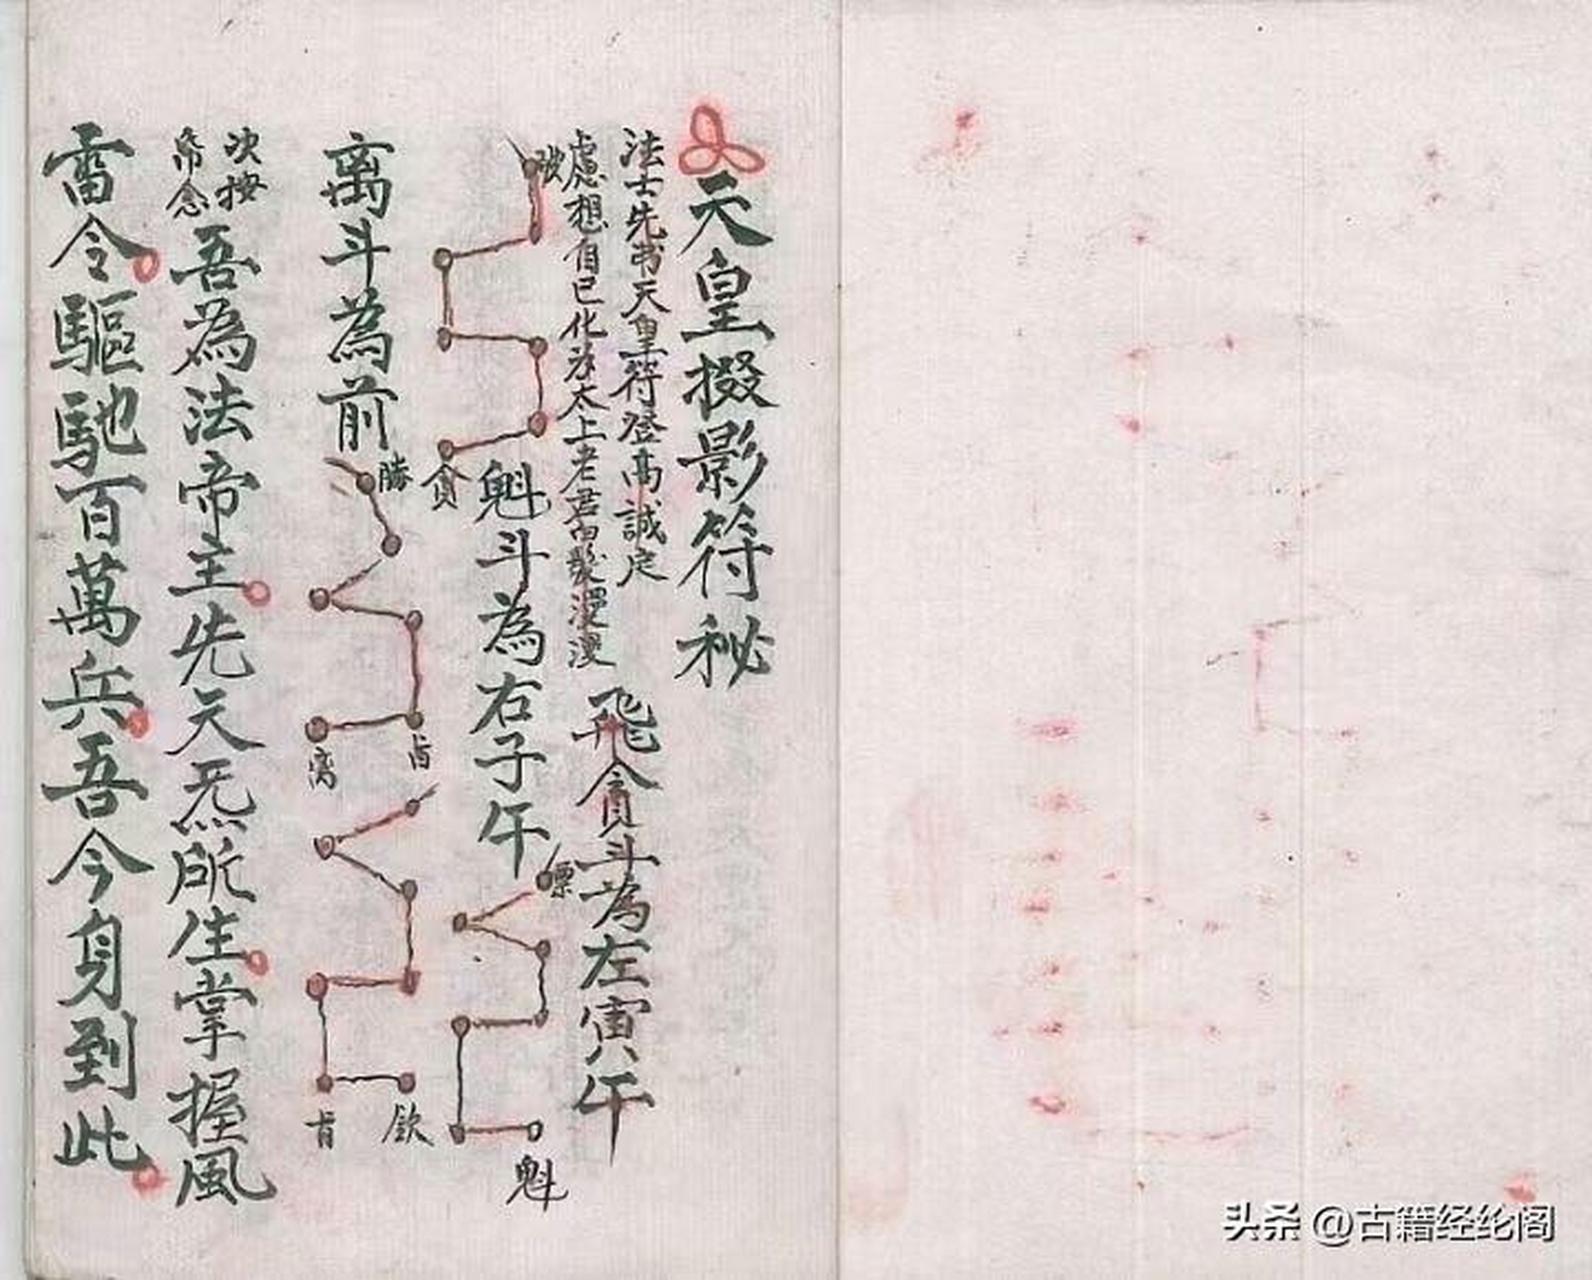 天皇掇影符秘
法士先书天皇符登高誠定
慮想自己化為太上老君白髮漫漫
飛貪斗為左寅午
破
貪
魁斗為右子午
標
魁
离斗為前
勝
离
欽
次按
帝念
吾為法帝主先天炁所生掌握風
雷令驅馳百萬兵吾今身到此
头条 @古籍经纶阁